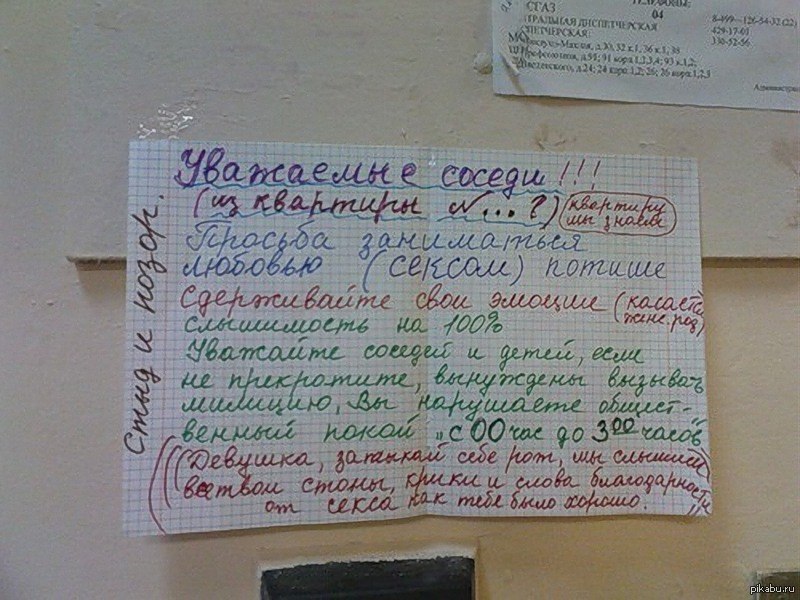 СГАЗ
04
8-499-126-54-32(22)
429-17-01
330-52-56
Уважаемые соседи!!!
(из квартиры №...?)
квартиру
мы знаем
Просьба заниматься
любовью (сексом) потише
Сдерживайте свои эмоции (касается
женс. род)
слышимость на 100%
Уважайте соседей и детей, если
не прекратите, вынуждены вызывать
милицию, Вы нарушаете общест-
венный покой „с 00 час до 3 00 часов"
((Девушка, затыкай себе рот, мы слышим
все твои стоны, крики и слова благодарности
от секса как тебе было хорошо.
Стыд и позор.
pikabu.ru